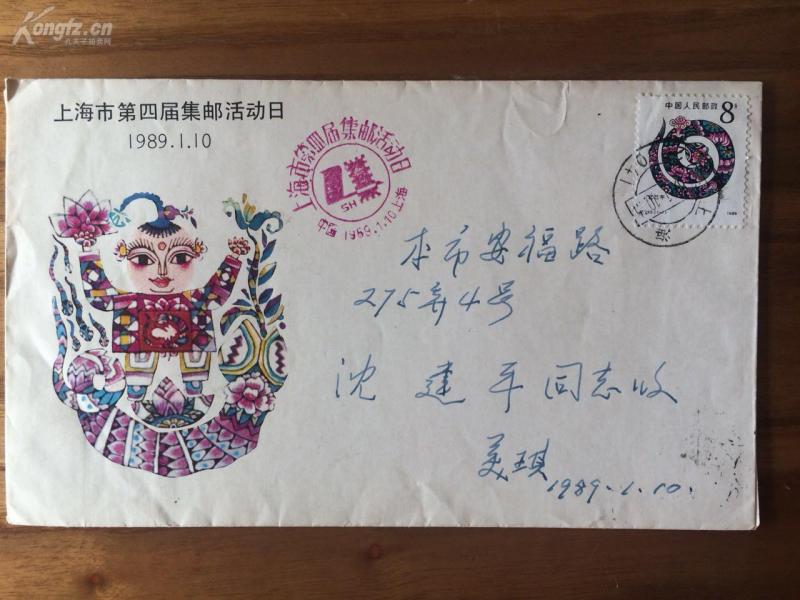 Kongfz.cn
孔夫子拍卖网
上海市第四届集邮活动日
1989.1.10
上海市第四届集邮活动日
SH
中国 1989.1.10 上海
中国人民邮政 8分
1989
上海
本市安福路
275弄4号
沈建平同志收
美琪
1989.1.10.